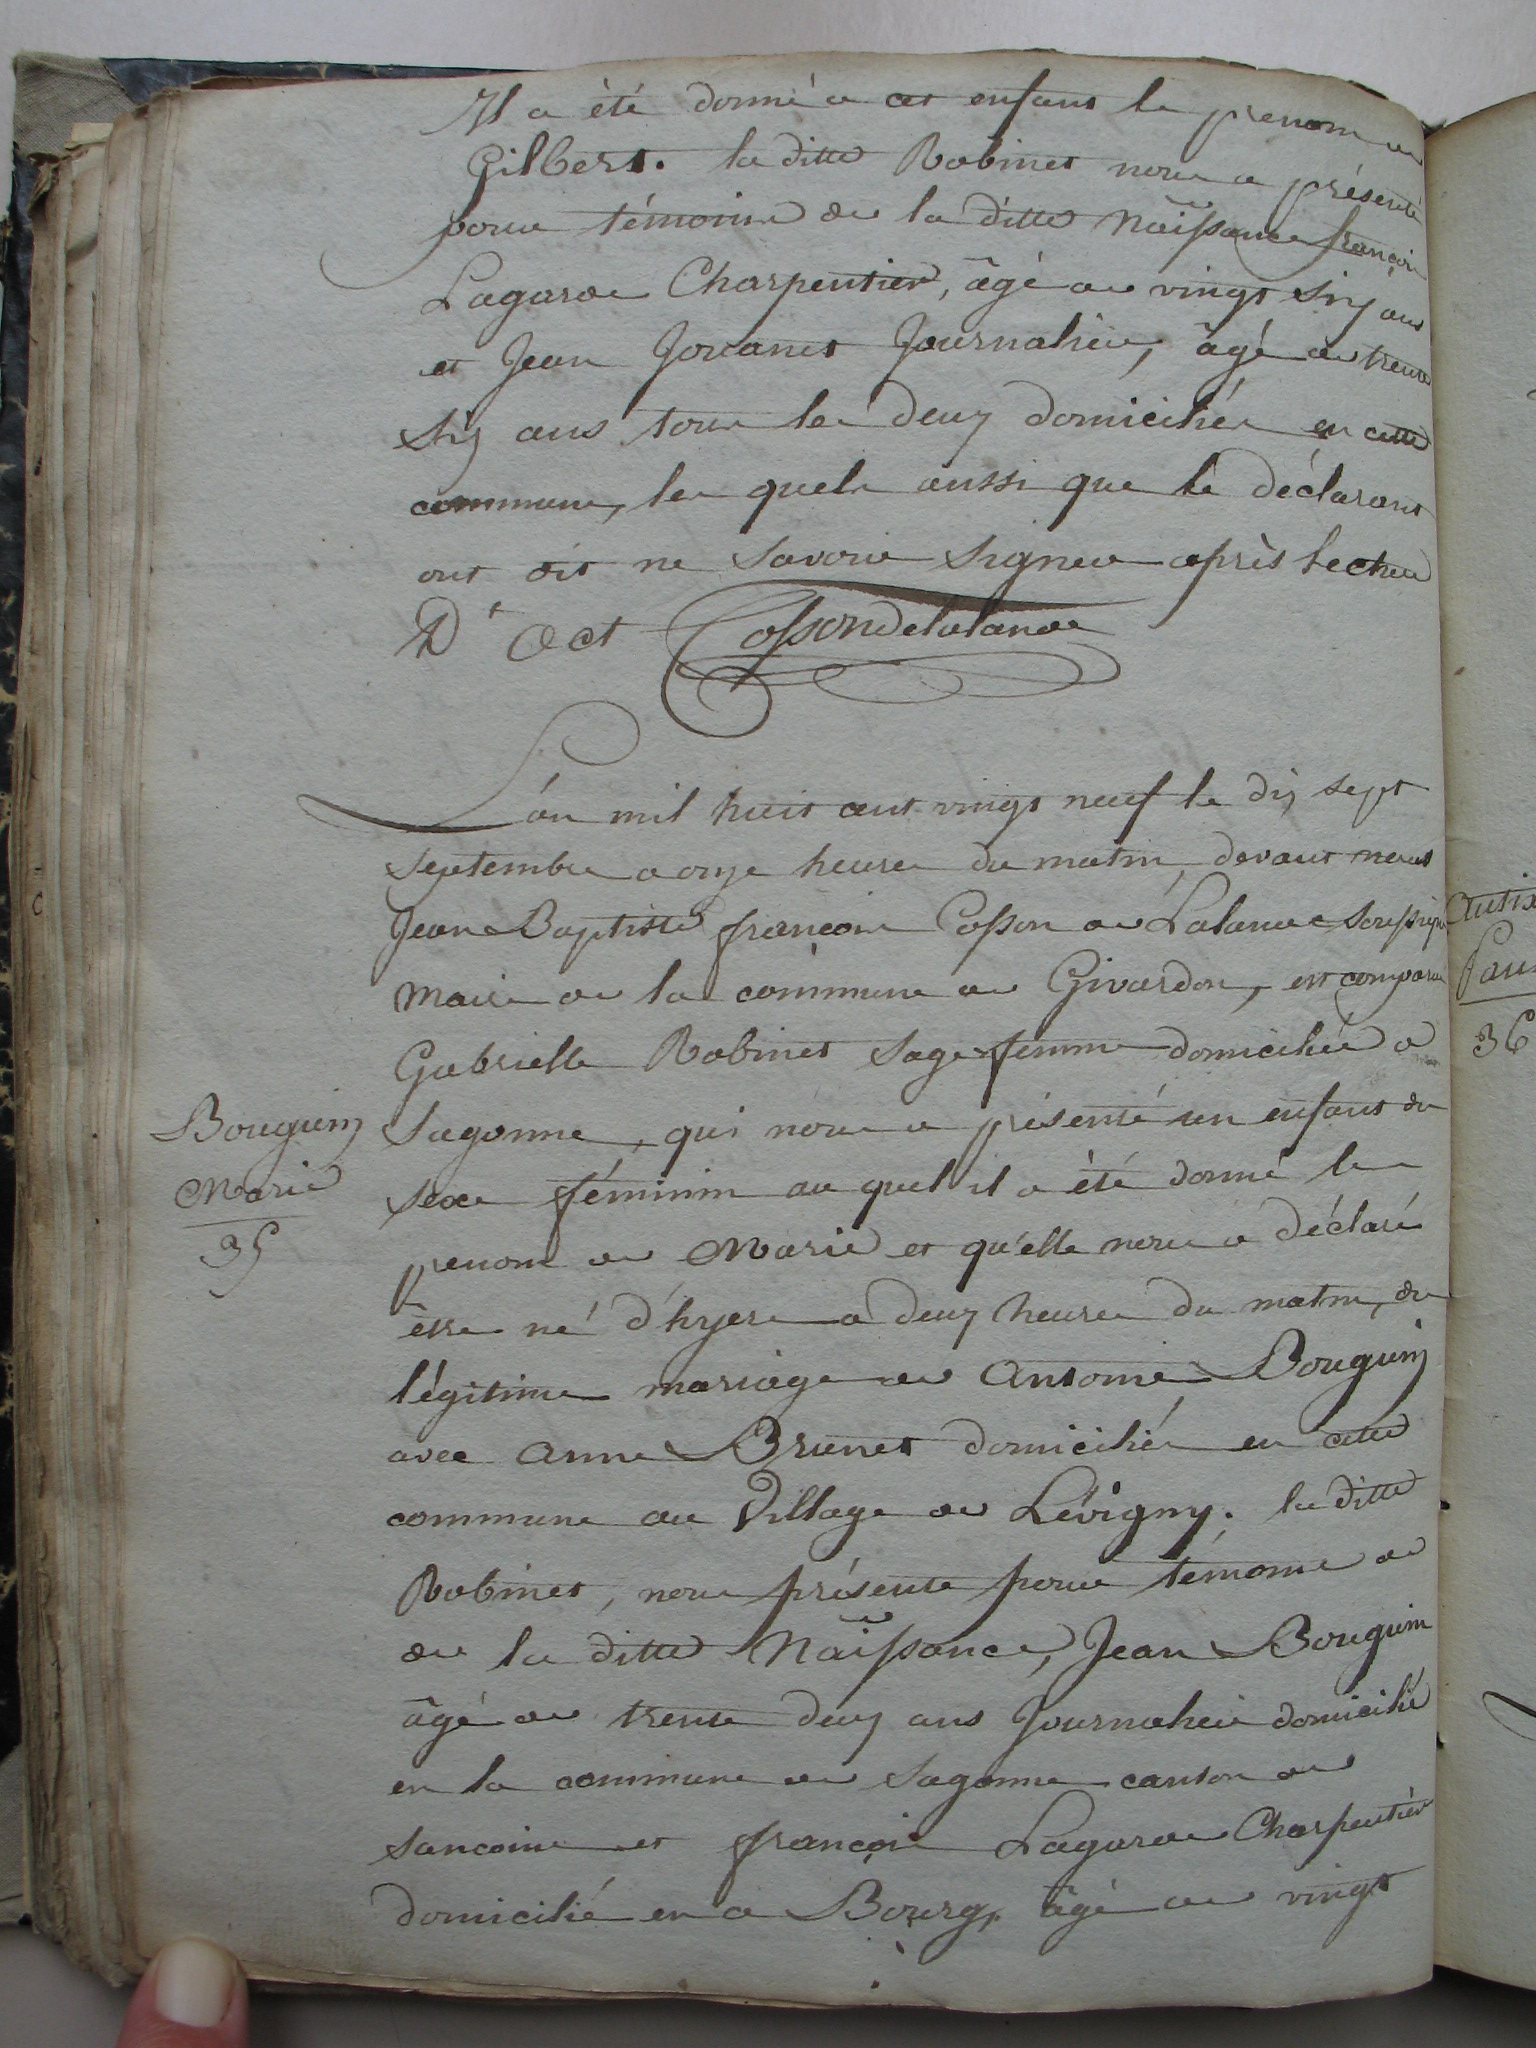 Il a été donné a cet enfant le prenom de
Gilbert. la ditte Robinet nous a présenté
pour témoins de la ditte Naissance françois
Lagarde Charpentier, âgé de vingt six ans
et Jean Jouanet Journalier, âgé de trente
six ans tous les deux domiciliés en cette
commune, les quels aussi que le déclarant
ont dit ne savoir signer après lecture
D'Act Cossondelalande
L'an mil huit cent vingt neuf le dix sept
septembre a onze heures du matin, devant nous
Jean Baptiste françois Cosson de Lalande soussigné
Maire de la commune de Givardon, est comparu
Gabrielle Robinet sage femme domiciliée a
Sagonne, qui nous a présenté un enfant du
sexe féminin au quel il a été donné le
prenom de Marie et qu'elle nous a déclaré
être né d'hyers a deux heures du matin, du
légitime mariage de Antoine Bouguin
avec Anne Brunet domiciliés en cette
commune au Village de Lévigny. la ditte
Robinet, nous présente pour témoins de
de la ditte Naissance, Jean Bouguin
âgé de trente deux ans Journalier domicilié
en la commune de Sagonne canton de
Sancoins et françois Lagarde Charpentier
domicilié en a Bourg, âgé de vingt
Bouguin
Marie
35
36